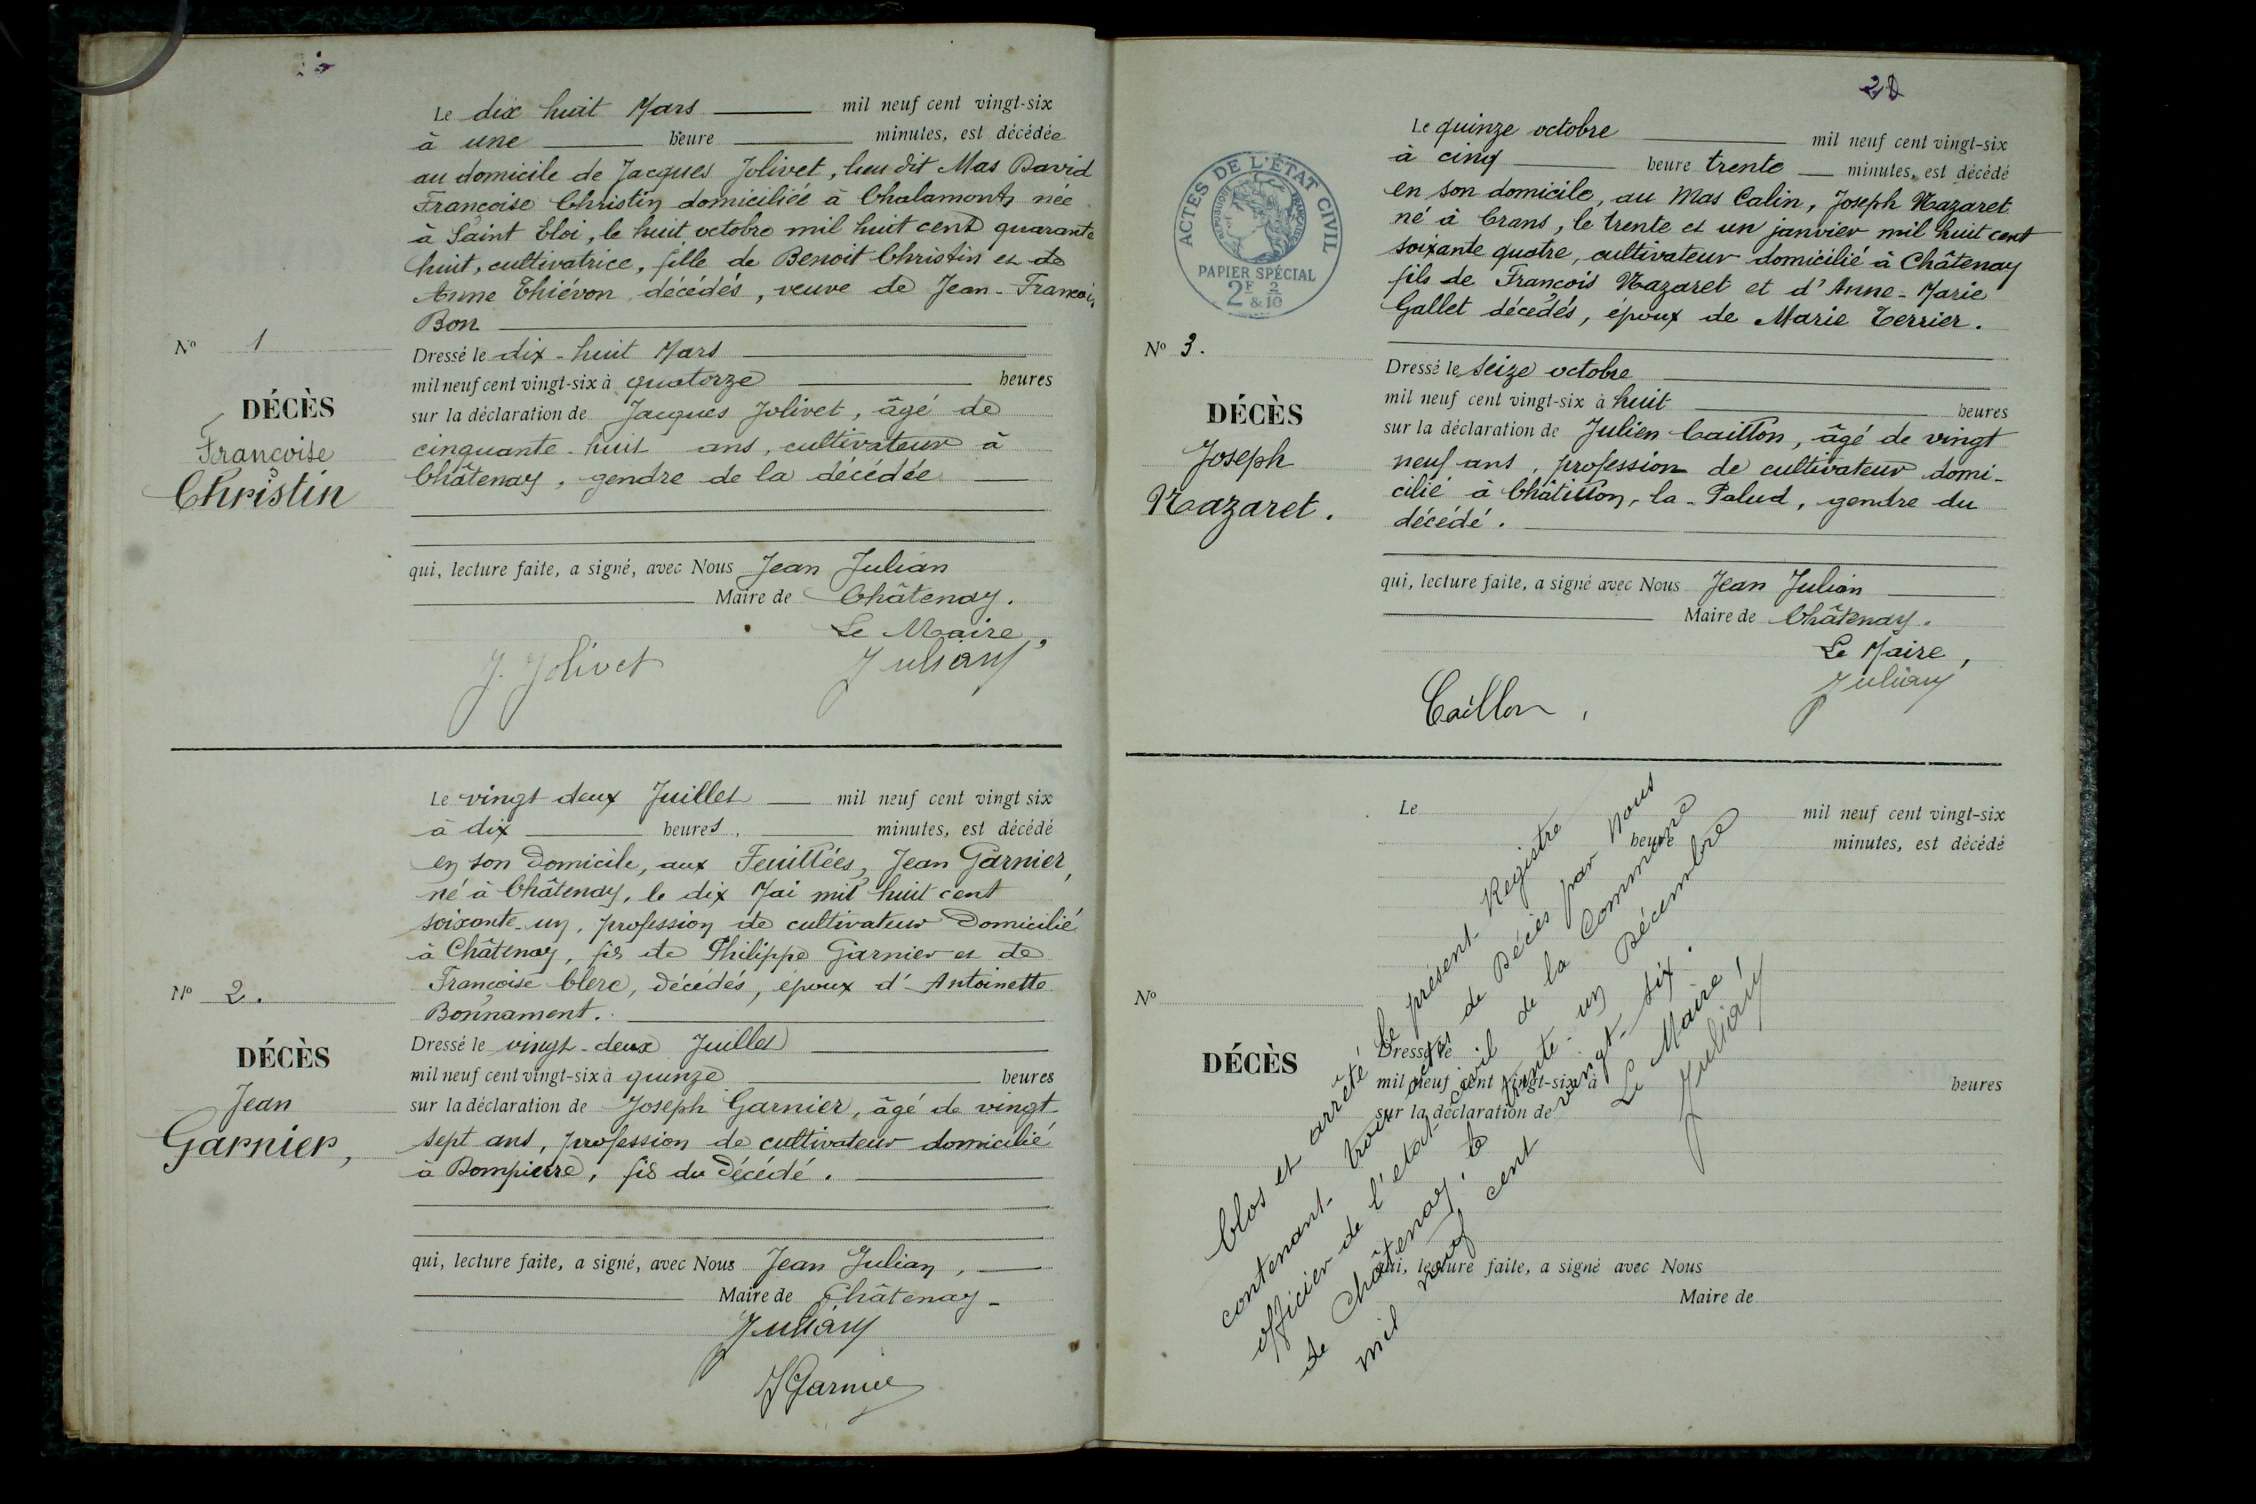 Le dix huit Mars mil neuf cent vingt-six
à une heure minutes, est décédée
au domicile de Jacques Jolivet, lieu dit Mas David
Françoise Christin domiciliée à Chalamont, née
à Saint Eloi, le huit octobre mil huit cent quarante
huit, cultivatrice, fille de Benoit Christin et de
Anne Thiévon décédés, veuve de Jean-François
Bon
Nº 1
DÉCÈS
Françoise
Christin
Dressé le dix-huit Mars
mil neuf cent vingt-six à quatorze heures
sur la déclaration de Jacques Jolivet, âgé de
cinquante-huit ans, cultivateur à
Châtenay, gendre de la décédée
qui, lecture faite, a signé, avec Nous Jean Julian
Maire de Châtenay.
Le Maire,
J. Jolivet Juliany
Le vingt deux Juillet mil neuf cent vingt six
à dix heures, minutes, est décédé
en son Domicile, aux Feuillées, Jean Garnier,
né à Châtenay, le dix Mai mil huit cent
soixante-un, profession de cultivateur Domicilié
à Châtenay, fis de Philippe Garnier et de
Françoise Clerc, décédés, époux d'Antoinette
Bonnament.
Nº 2.
DÉCÈS
Jean
Garnier,
Dressé le vingt-deux Juillet
mil neuf cent vingt-six à quinze heures
sur la déclaration de Joseph Garnier, âgé de vingt
sept ans, profession de cultivateur domicilié
à Dompierre, fis du Décédé.
qui, lecture faite, a signé, avec Nous Jean Julian,
Maire de Châtenay-
Juliany
J Garnier
20
ACTES DE L'ÉTAT CIVIL
REPUBLIQUE FRANÇAISE
PAPIER SPÉCIAL
2F & 2/10
Le quinze octobre mil neuf cent vingt-six
à cinq heure trente minutes, est décédé
en son domicile, au Mas Calin, Joseph Nazaret
né à Crans, le trente et un janvier mil huit cent
soixante quatre, cultivateur domicilié à Châtenay
fils de François Nazaret et d'Anne-Marie
Gallet décédés, époux de Marie Terrier.
Nº 3.
DÉCÈS
Joseph
Nazaret.
Dressé le seize octobre
mil neuf cent vingt-six à huit heures
sur la déclaration de Julien Caillon, âgé de vingt
neuf ans, profession de cultivateur domi-
cilié à Châtillon-la-Palud, gendre du
décédé.
qui, lecture faite, a signé avec Nous Jean Julian
Maire de Châtenay.
Le Maire,
Caillon, Juliany
Le mil neuf cent vingt-six
heure minutes, est décédé
Nº
DÉCÈS
Dressé le
mil neuf cent vingt-six à heures
sur la déclaration de
qui, lecture faite, a signé avec Nous
Maire de
Clos et arrêté le présent Registre
contenant trois actes de Décès par Nous
officier de l'etat-civil de la Commune
de Châtenay, le trente-un Décembre
mil neuf cent vingt-six.
Le Maire,
Juliany